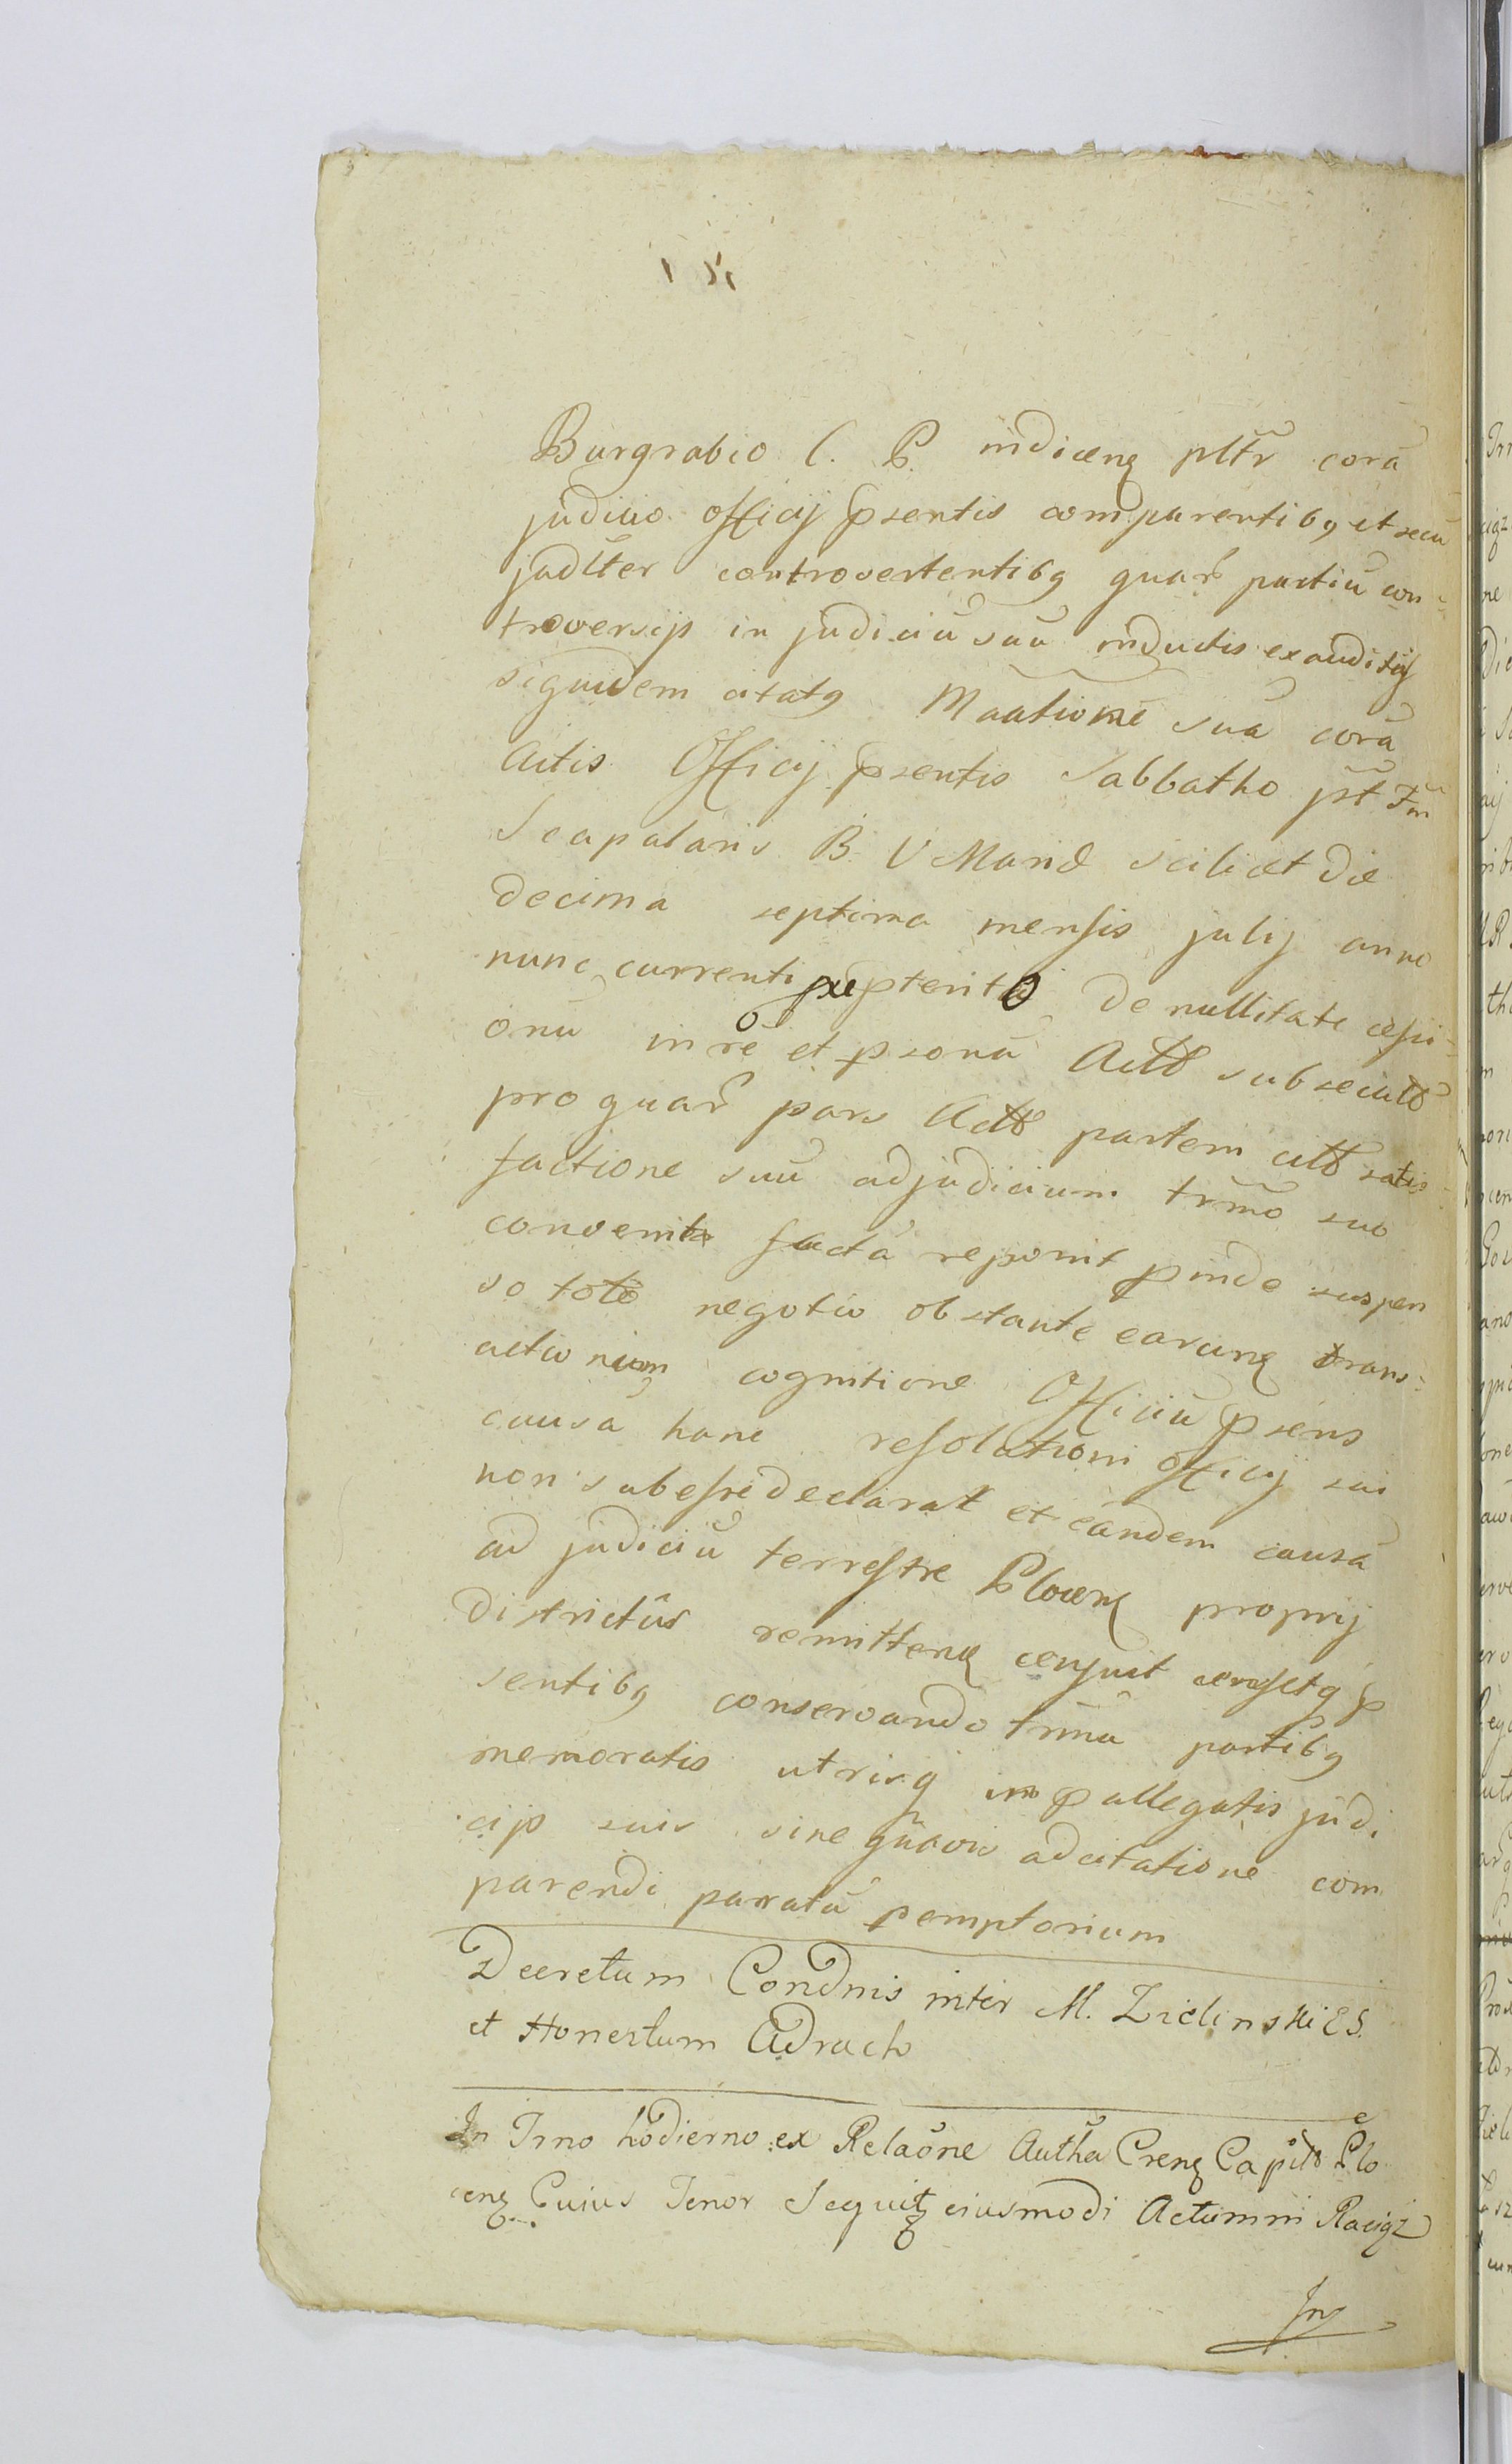 Burgrabio C. P. indicenꝫ pltr̃ corã
judicio officij psentis comparentibꝯ et secũ
judlter controvertentibꝯ quar̃ partiũ con-
troversijs in judiciũ suũ inductis exauditisqꝫ
siquidem citatꝯ Mãa͠tione sua corã
Actis Officij psentis Sabbatho pst Fm̃
Scapularis B V Mariæ scilicet die
decima septima mensis julij anno
nunc currenti pterito de nullitate cessi-
onũ in re et psonã Actt subsecutt
pro quar̃ pars Actt partem citt satis-
factione suũ ad judicium trm̃o suo
convenito factã reponit pinde suspen
so toto negotio obstante earunꝫ trans-
actionum cognitione Officiũ psens
causã hanc resolutioni officij sui
non subesse declarat et eandem causã
ad judiciũ terrestre Plocenꝫ proprij
districtûs remittenꝫ censuit censetqꝫ p
sentibꝯ conservando trm̃ũ partibꝯ
memoratis utrisqꝫ in pallegatis judi
cijs suis sine quavis adcitatione com
parendi paratũ pemptorium
Decretum Condnis inter M. Zielinski E S.
et Honestum Adrach
In Trno hodierno ex Relaõne Autha Crenꝫ Capitt Plo
cenꝫ Cuius Tenor Sequitꝫ eiusmodi Actum in Raciąz